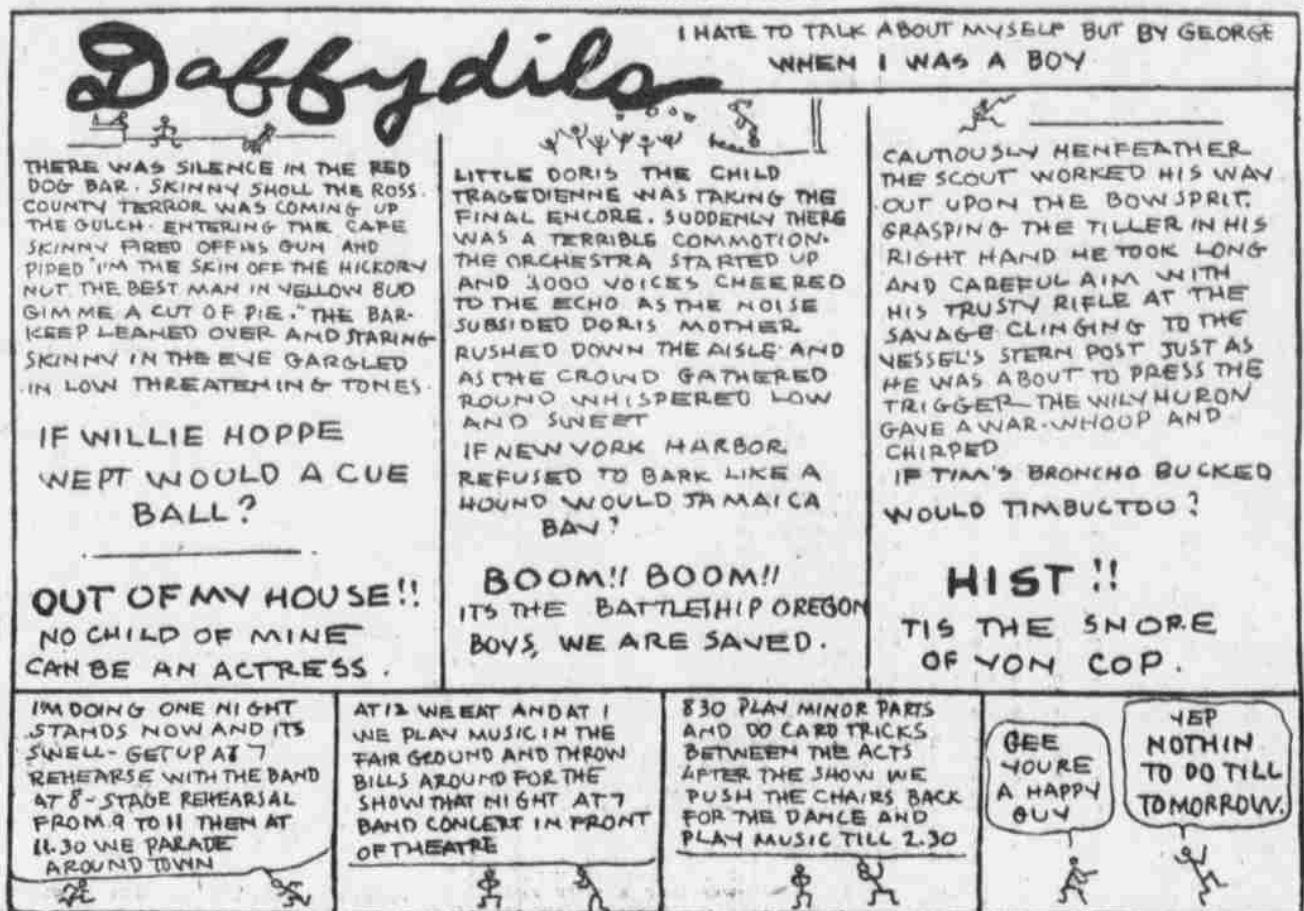 Daffydils
I HATE TO TALK ABOUT MYSELF BUT BY GEORGE
WHEN I WAS A BOY
THERE WAS SILENCE IN THE RED
DOG BAR. SKINNY SHOLL THE ROSS.
COUNTY TERROR WAS COMING UP
THE GULCH. ENTERING THE CAFE
SKINNY FIRED OFF HIS GUN AND
PIPED "I'M THE SKIN OFF THE HICKORY
NUT. THE BEST MAN IN YELLOW BUD
GIMME A CUT OF PIE." THE BAR-
KEEP LEANED OVER AND STARING
SKINNY IN THE EYE GARGLED
IN LOW THREATENING TONES.
IF WILLIE HOPPE
WEPT WOULD A CUE
BALL?
OUT OF MY HOUSE!!
NO CHILD OF MINE
CAN BE AN ACTRESS.
LITTLE DORIS THE CHILD
TRAGEDIENNE WAS TAKING THE
FINAL ENCORE. SUDDENLY THERE
WAS A TERRIBLE COMMOTION.
THE ORCHESTRA STARTED UP
AND 3000 VOICES CHEERED
TO THE ECHO AS THE NOISE
SUBSIDED DORIS MOTHER
RUSHED DOWN THE AISLE AND
AS THE CROWD GATHERED
ROUND WHISPERED LOW
AND SWEET
IF NEW YORK HARBOR
REFUSED TO BARK LIKE A
HOUND WOULD JAMAICA
BAY?
BOOM!! BOOM!!
ITS THE BATTLESHIP OREGON
BOYS, WE ARE SAVED.
CAUTIOUSLY HENFEATHER
THE SCOUT WORKED HIS WAY
OUT UPON THE BOWSPRIT.
GRASPING THE TILLER IN HIS
RIGHT HAND HE TOOK LONG
AND CAREFUL AIM WITH
HIS TRUSTY RIFLE AT THE
SAVAGE CLINGING TO THE
VESSEL'S STERN POST JUST AS
HE WAS ABOUT TO PRESS THE
TRIGGER THE WILY HURON
GAVE A WAR-WHOOP AND
CHIRPED
IF TIM'S BRONCHO BUCKED
WOULD TIMBUCTOO?
HIST!!
TIS THE SNORE
OF YON COP.
I'M DOING ONE NIGHT
STANDS NOW AND ITS
SWELL- GET UP AT 7
REHEARSE WITH THE BAND
AT 8 - STAGE REHEARSAL
FROM 9 TO 11 THEN AT
11.30 WE PARADE
AROUND TOWN
AT 12 WE EAT AND AT 1
WE PLAY MUSIC IN THE
FAIR GROUND AND THROW
BILLS AROUND FOR THE
SHOW THAT NIGHT AT 7
BAND CONCERT IN FRONT
OF THEATRE
830 PLAY MINOR PARTS
AND DO CARD TRICKS
BETWEEN THE ACTS
AFTER THE SHOW WE
PUSH THE CHAIRS BACK
FOR THE DANCE AND
PLAY MUSIC TILL 2.30
GEE
YOURE
A HAPPY
GUY
YEP
NOTHIN
TO DO TILL
TOMORROW.